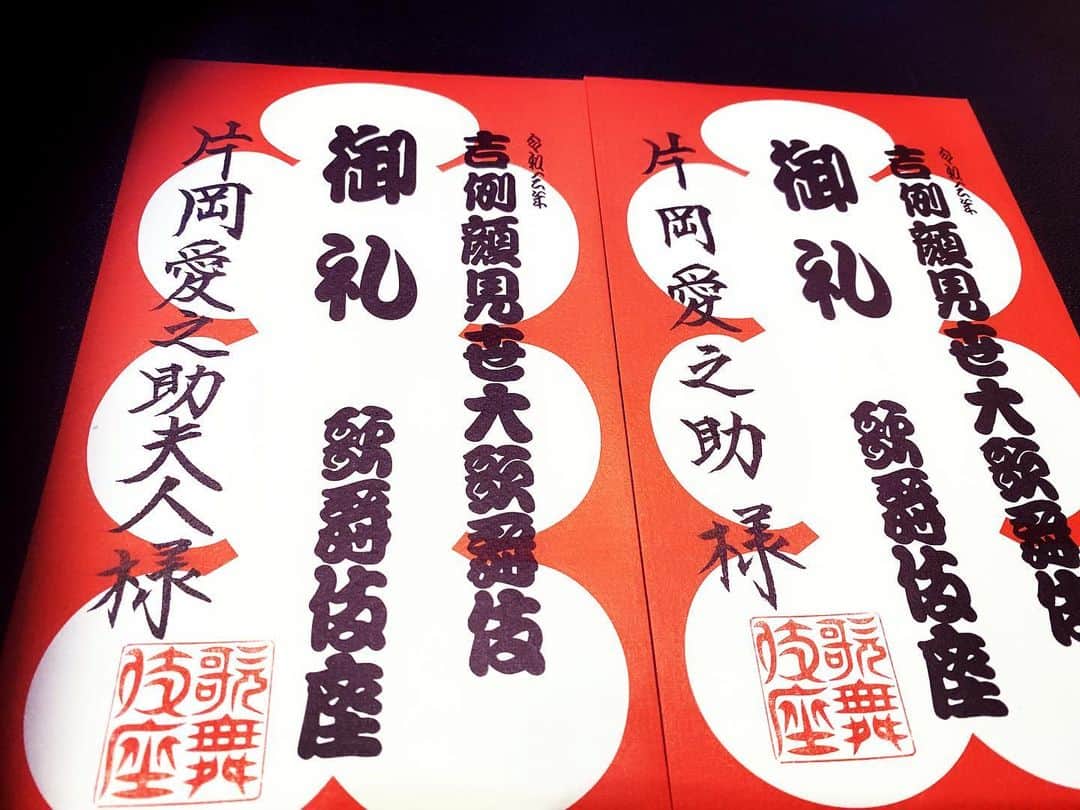 令和元年
吉例顔見世大歌舞伎
御礼 歌舞伎座
片岡愛之助夫人様
歌舞伎座
令和元年
吉例顔見世大歌舞伎
御礼 歌舞伎座
片岡愛之助様
歌舞伎座